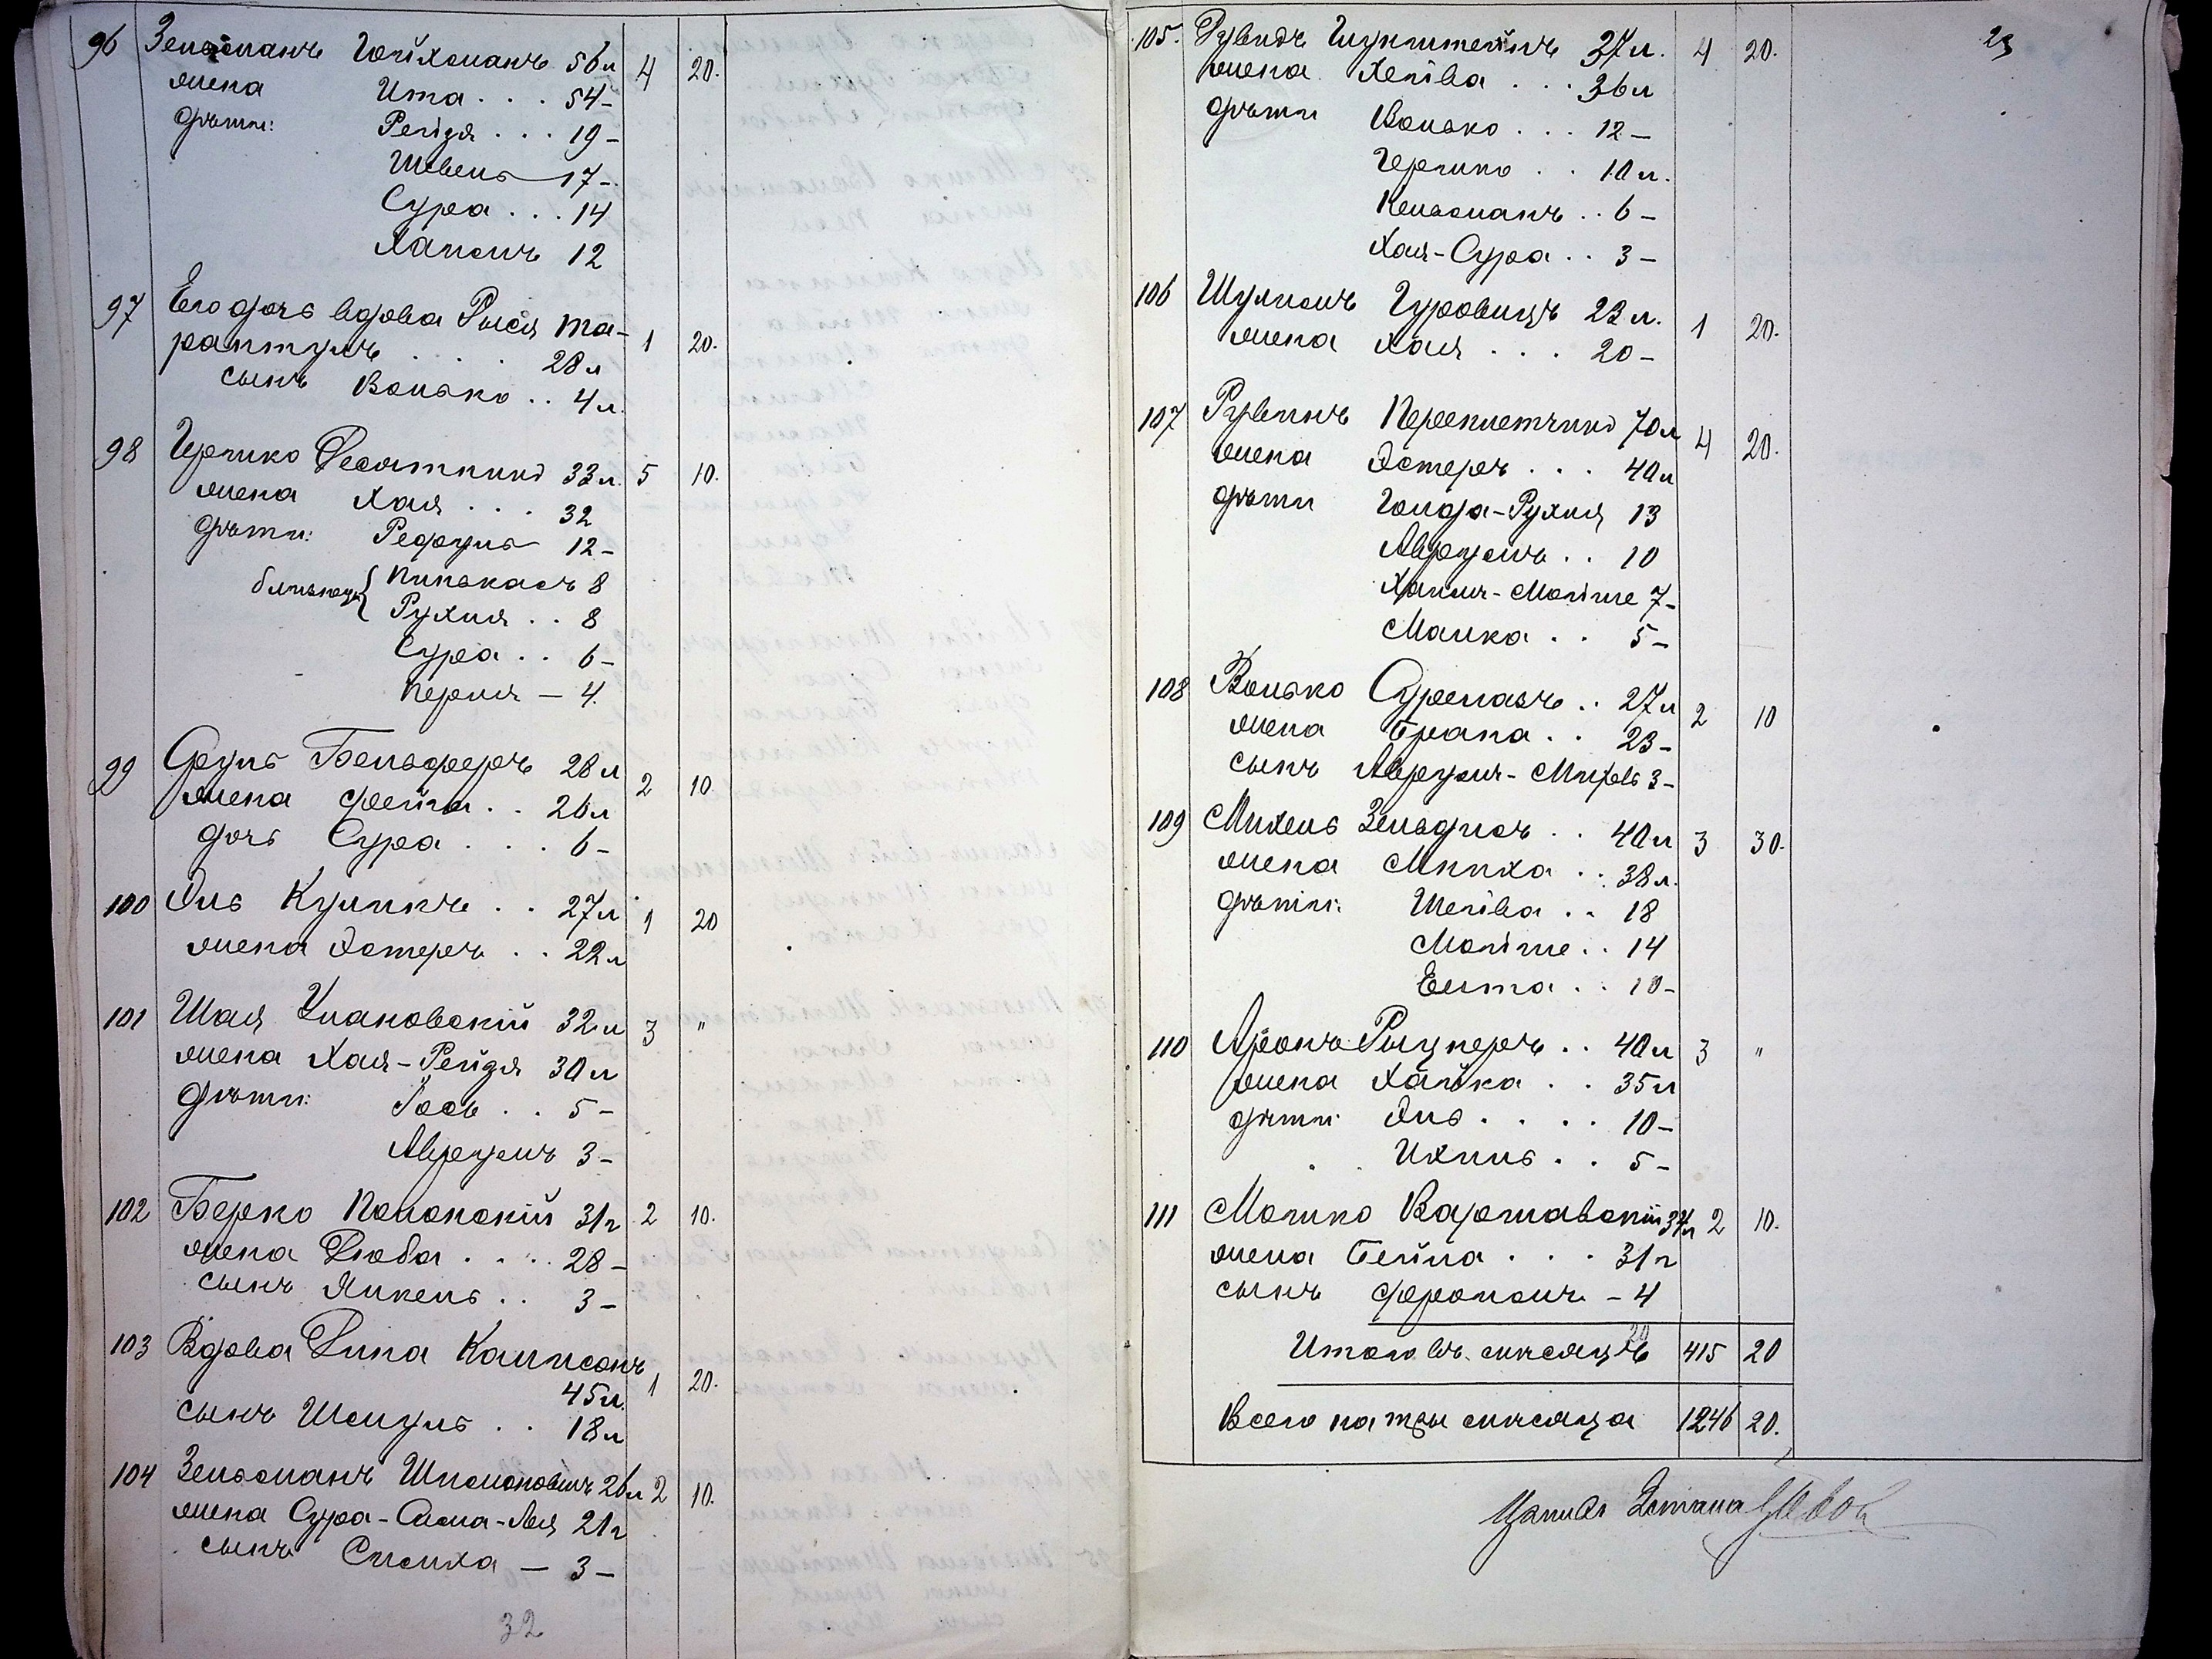 96 Зельманъ Гойхманъ 56 л 4 20.
жена Ита . . . 54 –
дѣти: Рейзя . . . 19 –
Шевель 17 –
Сура . . . 14
Хаимъ 12
97 Его дочь вдова Рыся Та-
рантулъ . . . . 28 л 1 20.
сынъ Волько . . 4 л.
98 Гершко Десятникъ 33 л. 5 10.
жена Хая . . . 32
дѣти: Рефуль 12 –
близнецы { Пинькасъ 8
Рухля . . 8
Сура . . 6 –
Перля – 4.
99 Сруль Бельферъ 28 л 2 10.
жена Фейга . . 26 л
дочь Сура . . . 6 –
100 Эль Куликъ . . 27 л 1 20
жена Эстеръ . . 22 л
101 Шая Улановскій 32 л 3 "
жена Хая-Рейзя 30 л
дѣти: Іось . . 5 –
Аврумъ 3 –
102 Берко Полонскій 31 г 2 10.
жена Люба . . . . 28 –
сынъ Янкель . . 3 –
103 Вдова Дина Калисонъ
45 л. 1 20.
сынъ Шмуль . . 18 л
104 Зельманъ Шлиомовичъ 26 л 2 10.
жена Сура-Сима-Лея 21 г
сынъ Симха – 3 –
32
23
105. Рувинъ Глукштейнъ 37 л. 4 20.
жена Хейва . . . 36 л
дѣти Волько . . . 12 –
Гершко . . 10 л.
Кельманъ . . 6 –
Хая-Сура . . 3 –
106 Шулимъ Гуровицъ 23 л. 1 20.
жена Хая . . . 20 –
107 Рувинъ Переплетчикъ 70 л 4 20.
жена Эстеръ . . . 40 л
дѣти Голда-Рухля 13
Аврумъ . . 10
Хаимъ-Мойше 7 –
Малка . . 5 –
108 Волько Суреназъ . . 27 л 2 10
жена Брана . . 23 –
сынъ Аврумъ- 3 –
109 Михель Зельдисъ . . 40 л 3 30.
жена Мниха . . 38 л.
дѣти: Шейва . . 18
Мойше . . 14
Ента . . 10 –
110 Аронъ Рыцнеръ . . 40 л 3 "
жена Хайка . . 35 л
дѣти: Эль . . . . 10 –
Ихиль . . 5 –
111 Мошко Варшавскій 34 л 2 10.
жена Бейла . . . 31 г
сынъ Фроимъ – 4
Итого въ мѣсяцъ 415 20
Всего на три мѣсяца 1246 20.